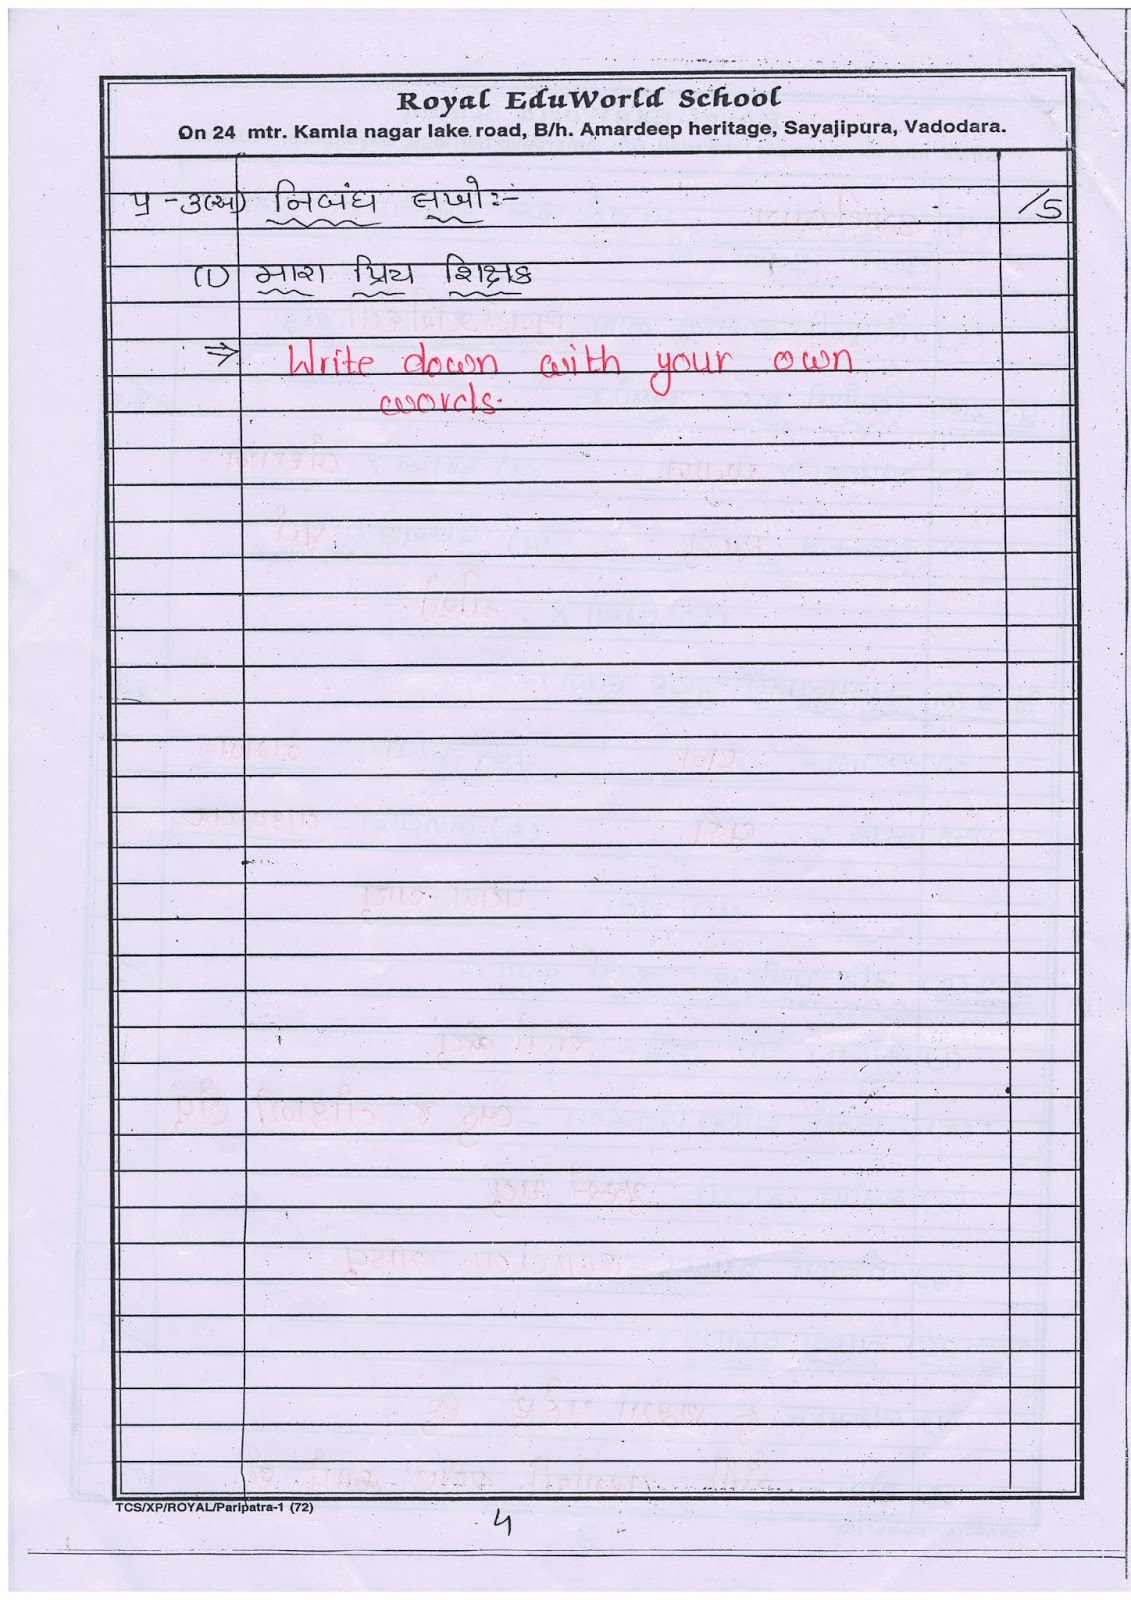 Royal EduWorld School
On 24 mtr. Kamla nagar lake road, B/h. Amardeep heritage, Sayajipura, Vadodara.
પ્ર -૩(અ) નિબંધ લખો:- /5
(1) મારા પ્રિય શિક્ષક
⇒ Write down with your own
words.
TCS/XP/ROYAL/Paripatra-1 (72)
૫